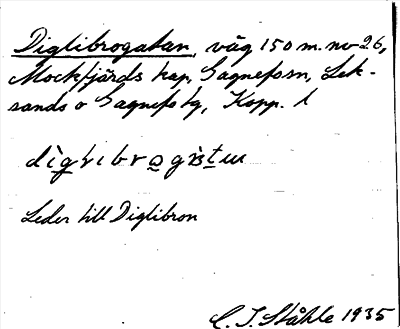 Diglibrogatan, väg 150 m. nv 26,
Mockfjärds kap, Gagnefs sn, Lek-
sands o Gagnefs tg, Kopp. l
Leder till Diglibron
C. I. Ståhle 1935